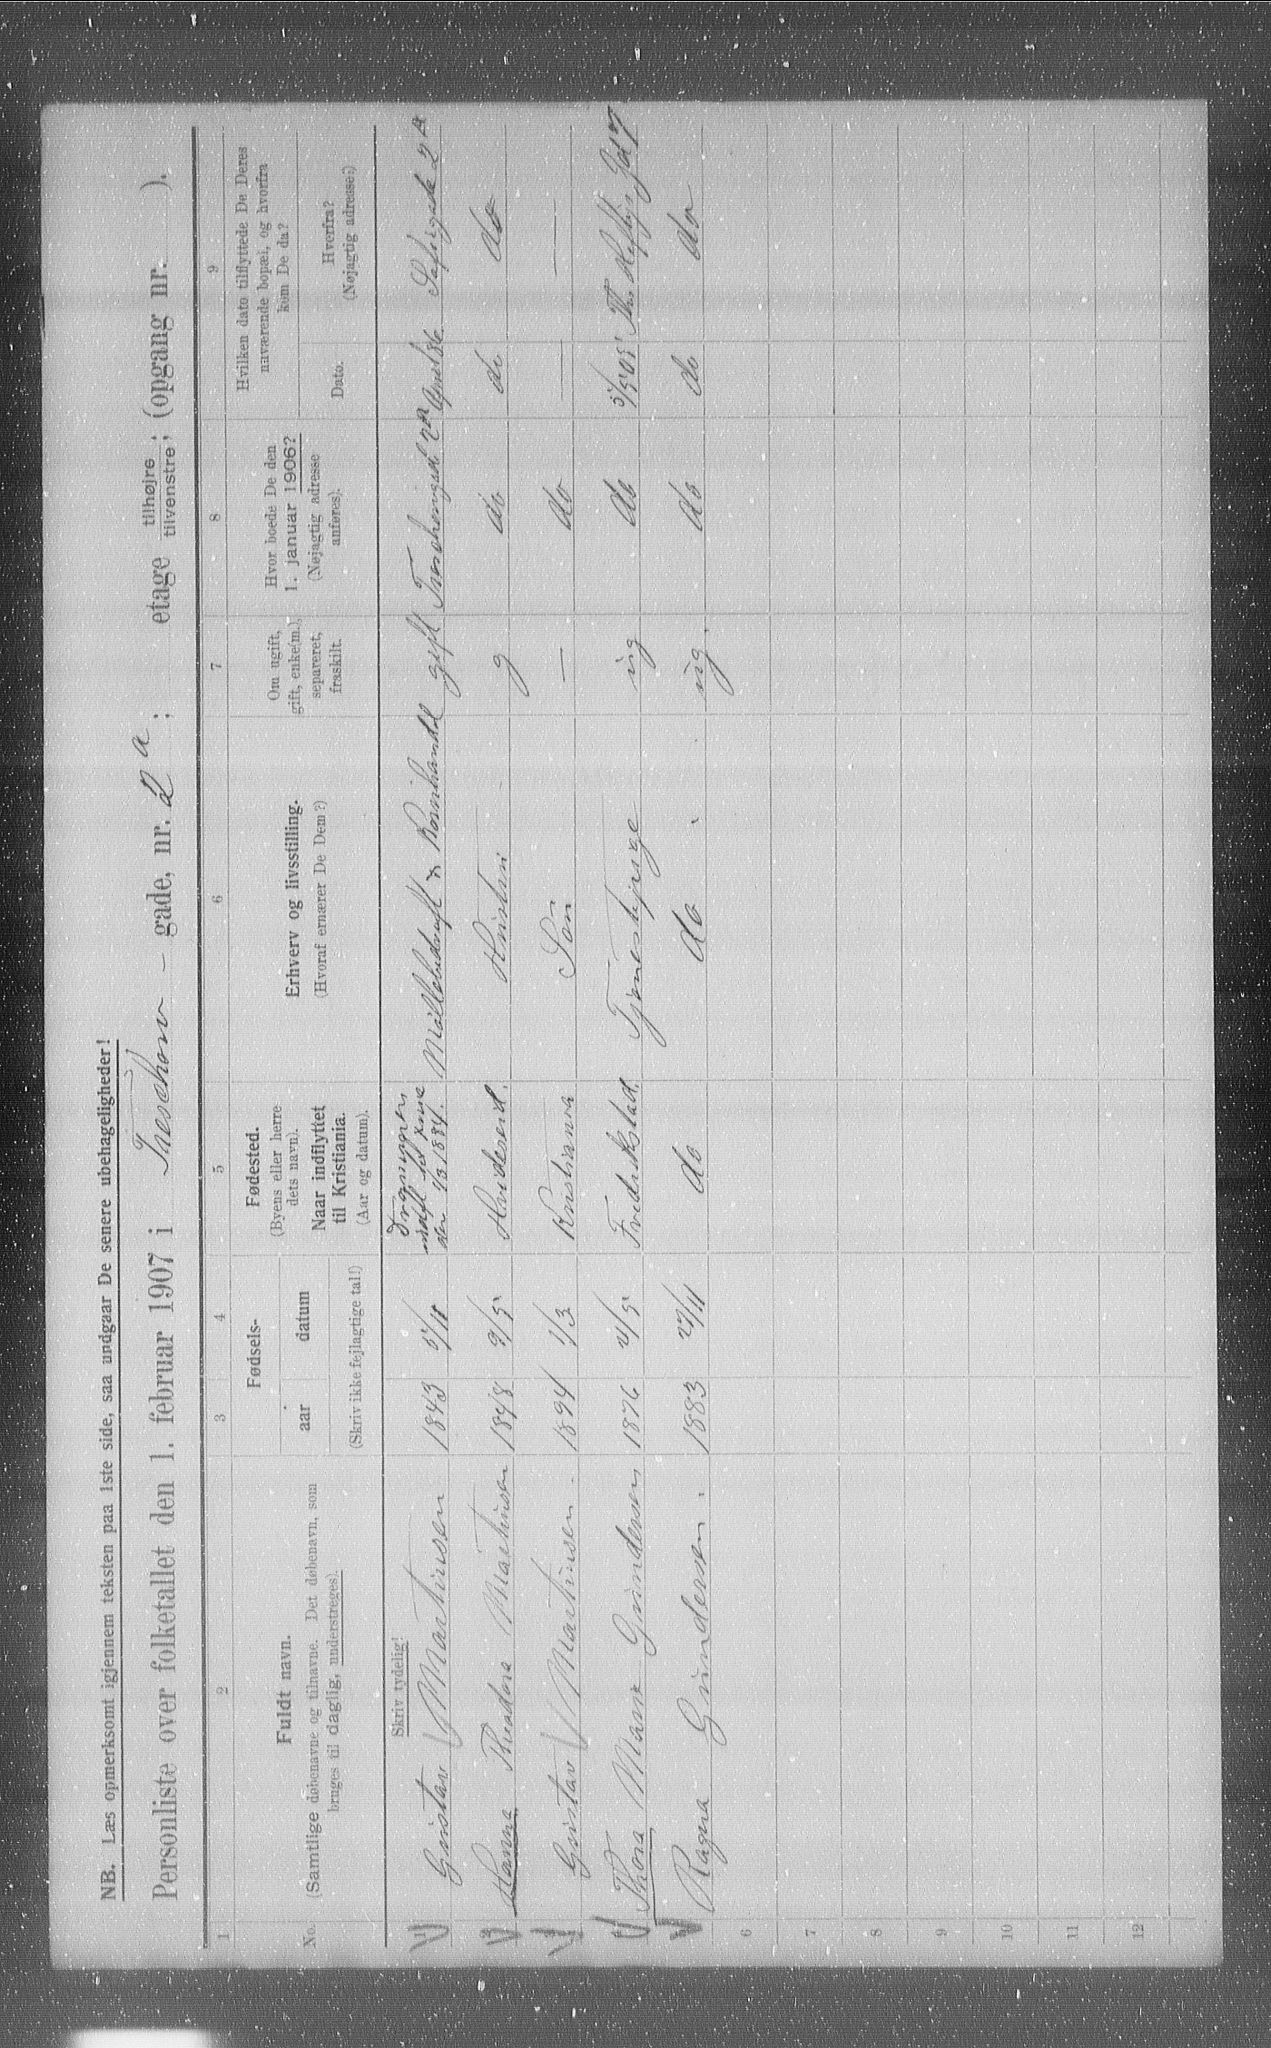 NB. Læs opmerksomt igjennem teksten paa 1ste side, saa undgaar De senere ubehageligheder!
Personliste over folketallet den 1. februar 1907 i Treschow - gade, nr. 2 a; etage tilhøjre tilvenstre; (opgang nr. ).
1 2 3 4 5 6 7 8 9
No.
Fuldt navn.
(Samtlige døbenavne og tilnavne. Det døbenavn, som
bruges til daglig, understreges).
Fødsels-
aar datum
(Skriv ikke fejlagtige tal!)
Fødested.
(Byens eller herre
dets navn).
Naar indflyttet
til Kristiania.
(Aar og datum).
Erhverv og livsstilling.
(Hvoraf ernærer De Dem?)
Om ugift,
gift, enke(m.),
separeret,
fraskilt.
Hvor boede De den
1. januar 1906?
(Nøjagtig adresse
anføres).
Hvilken dato tilflyttede De Deres
nuværende bopæl, og hvorfra
kom De da?
Dato.
Hvorfra?
(Nøjagtig adresse;)
Skriv tydelig!
1 Gustav Martinsen 1843 /11 1884. Møllebedrift & Kornhandel gift Treschowsgad 2a April 86 2 A
2 Hanna Theodora Martinsen 1848 9/5 Hvidesød. Hustru g do do do
3 Gustav Martinsen. 1894 1/3 Kristiania Søn — do — —
Thora Marie Gundersen 1876 4/5 Fredrikstad. Tjenestepige ug do 5/5 05 Ths. Heftys Gd 7
Ragna Gundersen. 1883 27/11 do do ug. do do do
6
7
8
9
10
11
12